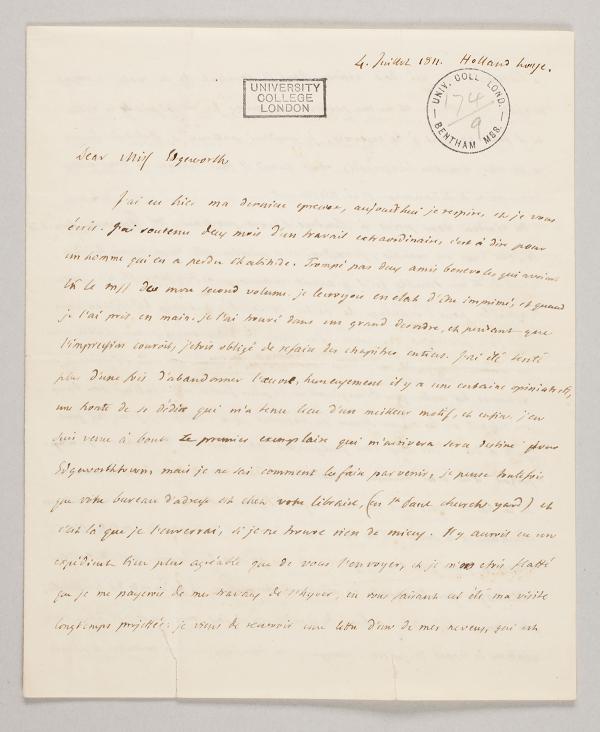 4. Juillet 1811. Holland house.
UNIVERSITY
COLLEGE
LONDON
UNIV. COLL. LOND.
174
9
BENTHAM MSS.
Dear Miss Edgeworth
J'ai eu hier ma derniere epreuve, aujourd'hui je respire, et je vous
écris. J'ai soutenu deux mois d'un travail extraordinaire, c'est à dire pour
un homme qui en a perdu l'habitude. Trompé par deux amis benevoles qui avoient
lû le mss de mon second volume, je le croyois en etat d'être imprimé, et quand
je l'ai pris en main, je l'ai trouvé dans un grand desordre, et pendant que
l'impression couroit, j'étois obligé de refaire des chapitres entiers. J'ai été tenté
plus d'une fois d'abandonner l'œuvre, heureusement il y a une certaine opiniatreté,
une honte de se dédire qui m'a tenu lieu d'un meilleur motif, et enfin j'en
suis venu à bout. Le premier exemplaire qui m'arrivera sera destiné pour
Edgeworthtown, mais je ne sai comment le faire parvenir, je pense toutefois
que votre bureau d'adresse est chez votre libraire, (en St Paul church-yard) et
c'est là que je l'enverrai, si je ne trouve rien de mieux. Il y auroit eu un
expédient bien plus agréable que de vous l'envoyer, et je m'étois flatté
que je me payerois de mes travaux de l'hyver, en vous faisant cet été ma visite
longtemps projettée: je viens de recevoir une lettre d'un de mes neveux, qui est